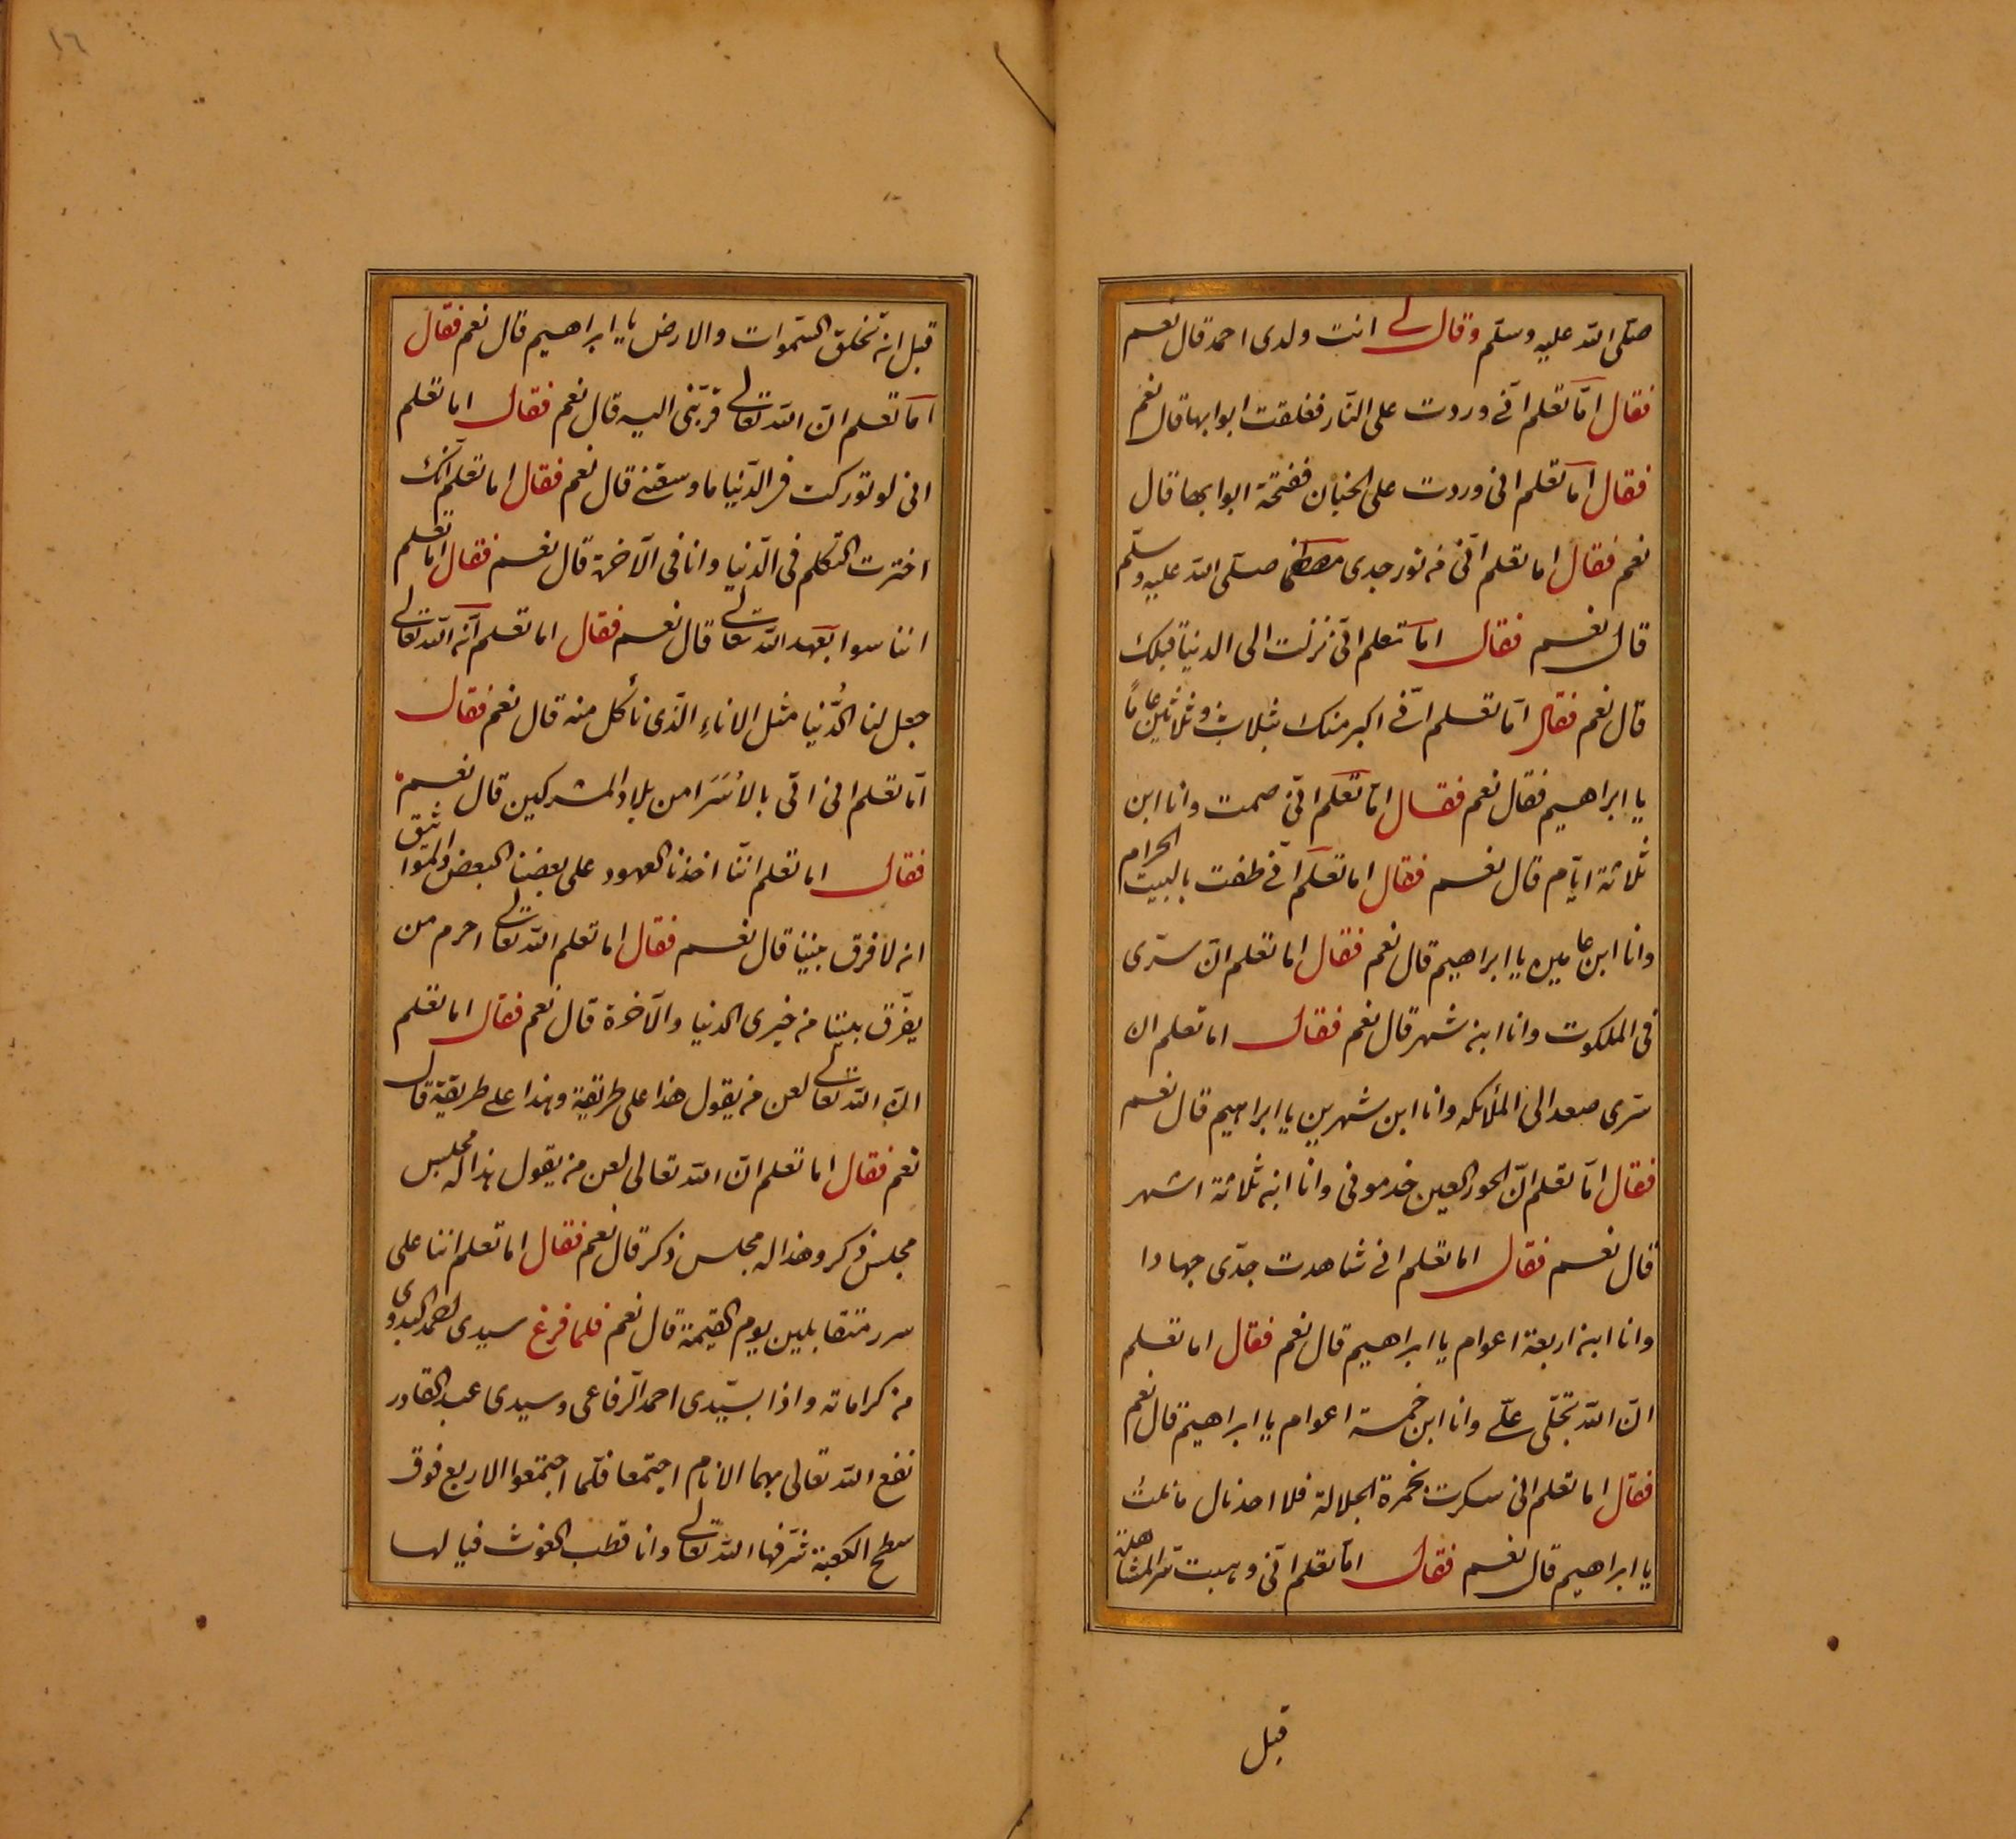 صلّى الله عليه وسلّم وقال لى انت ولدى احمد قال نعم
فقال امّا تعلم انّى وردت على النّار فغلقت ابوابها قال نعم
فقال اما تعلم انى وردت على الجنان ففتحة ابوابها قال
نعم فقال اما تعلم انّى من نور جدى مصطفى صلّى الله عليه وسلّم
قال نعم فقال اما تعلم انّى نزلت الى الدنيا قبلك
قال نعم فقال اما تعلم انّى اكبر منك بثلاث وثلاثين عاماً
يا ابراهيم فقال نعم فقال امّا تعلم انّى صمت وانا ابن
ثلاثة ايّام قال نعم فقال اما تعلم انّى طفت بالبيت الحرام
وانا ابن عامين يا ابراهيم قال نعم فقال اما تعلم انّ سرّى
فى الملكوت وانا ابن شهر قال نعم فقال اما تعلم ان
سرّى صعد الى الملائكه وانا ابن شهرين يا ابراهيم قال نعم
فقال امّا تعلم انّ الحور العين خدمونى وانا ابن ثلاثة اشهر
قال نعم فقال اما تعلم انى شاهدت جدّى جهادا
وانا ابن اربعة اعوام يا ابراهيم قال نعم فقال اما تعلم
انّ الله تجلّى علىّ وانا ابن خمسة اعوام يا ابراهيم قال نعم
فقال اما تعلم انى سكرت بخمرة الجلالة فلا احد نال ما نلت
يا ابراهيم قال نعم فقال اما تعلم انّى وهبت سّر المشاهدة
قبل
١٦
قبل ان تخلق السّموات والارض يا ابراهيم قال نعم فقال
اما تعلم انّ الله تعالى قرّبنى اليه قال نعم فقال اما تعلم
انى لو توركت فى الدّنيا ما وسعتنى قال نعم فقال اما تعلم انّك
اخترت التكلم فى الدّنيا وانا فى الآخرة قال نعم فقال اما تعلم
اننا سوا بعهد الله تعالى قال نعم فقال اما تعلم انّ الله تعالى
جعل لنا الدُّنيا مثل الاناءِ الّذى نأكل منه قال نعم فقال
امّا تعلم انى اتى بالاُسَرَا من بلاد المشركين قال نعم
فقال اما تعلم انّنا اخذنا العهود على بعضنا البعض والمواثيق
انه لا فرق بيننا قال نعم فقال اما تعلم الله تعالى احرم من
يفرّق بيننا من خيرى الدنيا والآخرة قال نعم فقال اما تعلم
انّ الله تعالى لعن من يقول هذا على طريقة وهذا على طريقة قال
نعم فقال اما تعلم انّ الله تعالى لعن من يقول هذا له مجلس
مجلس ذكر وهذا له مجلس ذكر قال نعم فقال اما تعلم اننا على
سرر متقابلين يوم القيمة قال نعم فلما فرغ سيدى احمد البدوى
من كراماته واذا بسيّدى احمد الرّفاعى وسيدى عبد القادر
نفع الله تعالى بهما الانام اجتمعا فلمّا اجتمعوا الاربع فوق
سطح الكعبة شرّفها الله تعالى وانا قطب الغوث فيا لها